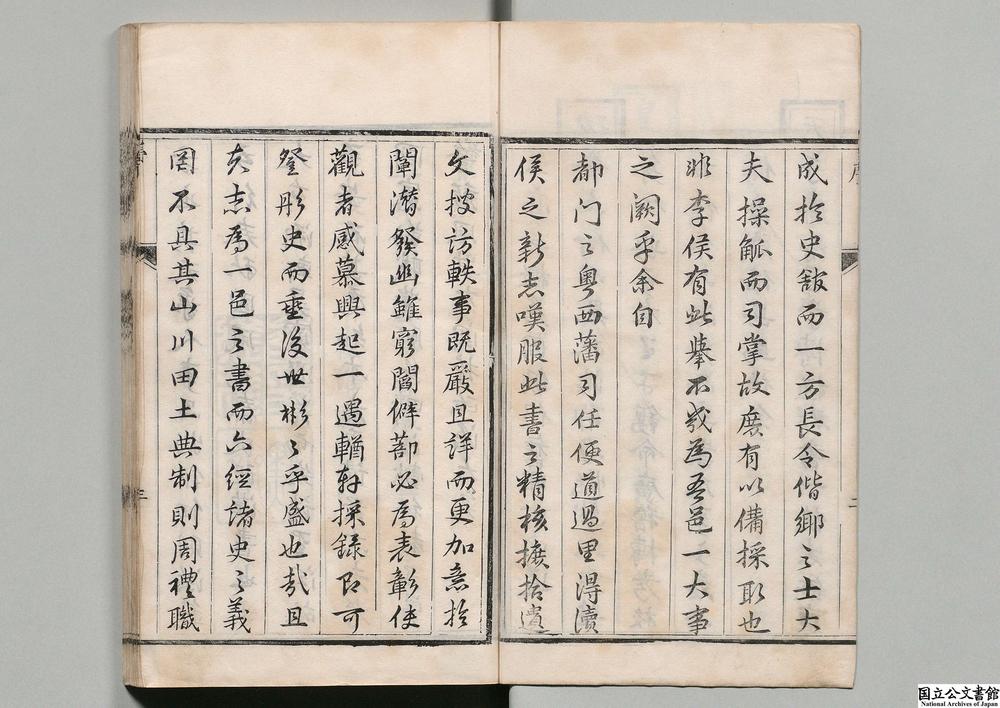 成於史舘而一方長令偕鄉之士大
夫操觚而司掌故庶有以備採取也
非李侯有此舉不幾為吾邑一大事
之闕乎余自
都门之粵西藩司任便道過里得讀
侯之新志嘆服此書之精核摭拾遺
文搜访軼事既嚴且詳而更加意於
闡潛發幽雖窮閻僻蔀必為表彰使
觀者感慕興起一遇輶軒採錄即可
登彤史而垂後世彬々乎盛也哉且
夫志為一邑之書而六經諸史之義
罔不具其山川田土典制則周禮職
序
二
三
国立公文書館
National Archives of Japan